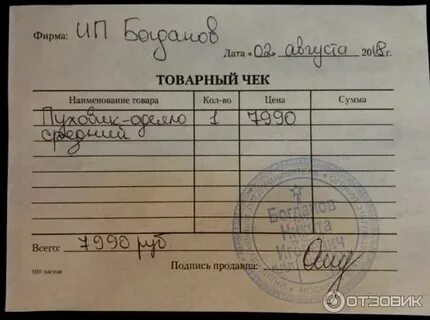 Фирма: ИП Богданов
Дата «02» августа 2018г.
ТОВАРНЫЙ ЧЕК
Наименование товара Кол-во Цена Сумма
Пуховик-одеяло 1 7990
средний
Всего: 7990 руб
Подпись продавца:
100 листов
Богданов
Никита
ОТЗОВИК